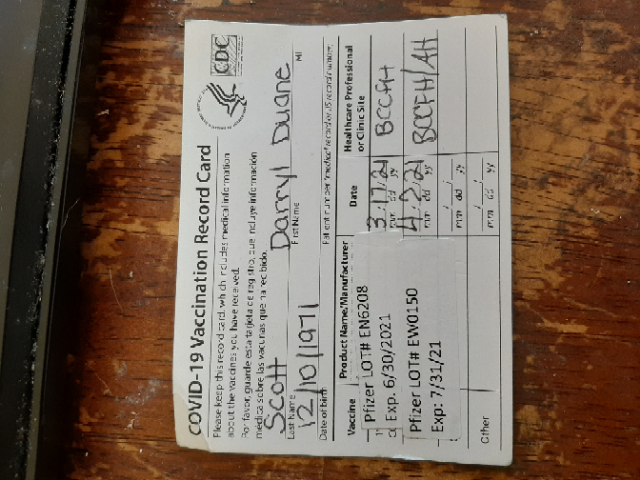 COVID-19 Vaccination Record Card
CDC
Please keep this record card, which includes medical information
about the vaccines you have received.
Por favor, guarde esta tarjeta de registro, que incluye información
médica sobre las vacunas que ha recibido.
Scott Darryl Duane
Last Name First Name MI
12/10/1971
Date of birth Patient number (medical record or IIS record number)
Vaccine Product Name/Manufacturer Date Healthcare Professional
or Clinic Site
Pfizer LOT# EN6208
Exp. 6/30/2021
3/17/21
mm dd yy
Pfizer LOT# EW0150
Exp: 7/31/21
4/2/21
mm dd yy
mm dd yy
Other
mm dd yy